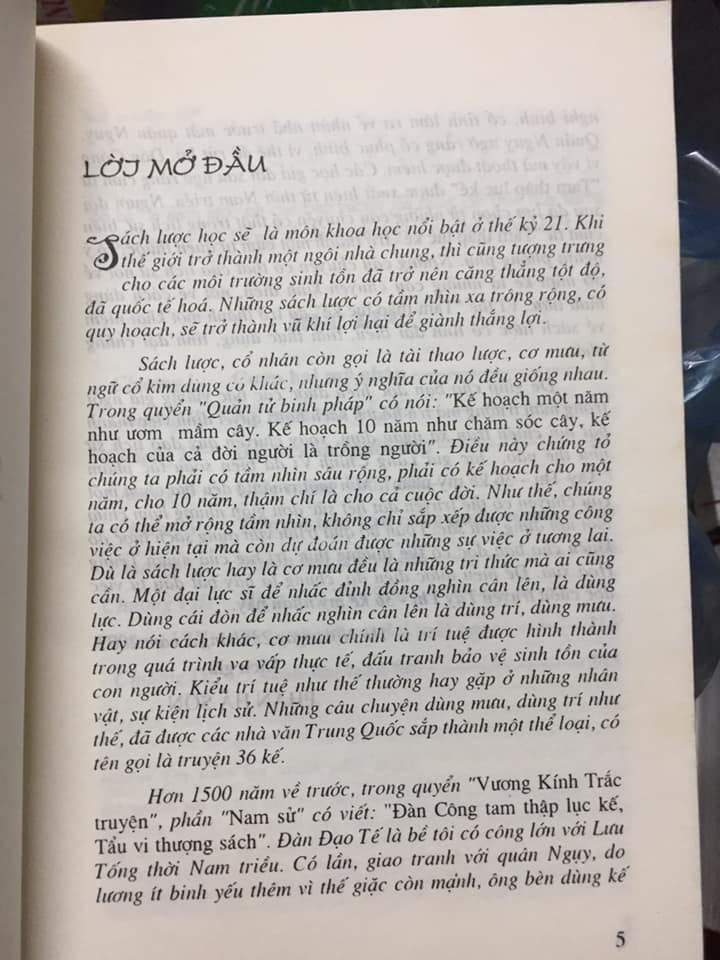 LỜI MỞ ĐẦU
Sách lược học sẽ là môn khoa học nổi bật ở thế kỷ 21. Khi
thế giới trở thành một ngôi nhà chung, thì cũng tượng trưng
cho các môi trường sinh tồn đã trở nên căng thẳng tột độ,
đã quốc tế hoá. Những sách lược có tầm nhìn xa trông rộng, có
quy hoạch, sẽ trở thành vũ khí lợi hại để giành thắng lợi.
Sách lược, cổ nhân còn gọi là tài thao lược, cơ mưu, từ
ngữ cổ kim dùng có khác, nhưng ý nghĩa của nó đều giống nhau.
Trong quyển "Quản tử binh pháp" có nói: "Kế hoạch một năm
như ươm mầm cây. Kế hoạch 10 năm như chăm sóc cây, kế
hoạch của cả đời người là trồng người". Điều này chứng tỏ
chúng ta phải có tầm nhìn sâu rộng, phải có kế hoạch cho một
năm, cho 10 năm, thậm chí là cho cả cuộc đời. Như thế, chúng
ta có thể mở rộng tầm nhìn, không chỉ sắp xếp được những công
việc ở hiện tại mà còn dự đoán được những sự việc ở tương lai.
Dù là sách lược hay là cơ mưu đều là những tri thức mà ai cũng
cần. Một đại lực sĩ để nhấc đỉnh đồng nghìn cân lên, là dùng
lực. Dùng cái đòn để nhấc nghìn cân lên là dùng trí, dùng mưu.
Hay nói cách khác, cơ mưu chính là trí tuệ được hình thành
trong quá trình va vấp thực tế, đấu tranh bảo vệ sinh tồn của
con người. Kiểu trí tuệ như thế thường hay gặp ở những nhân
vật, sự kiện lịch sử. Những câu chuyện dùng mưu, dùng trí như
thế, đã được các nhà văn Trung Quốc sắp thành một thể loại, có
tên gọi là truyện 36 kế.
Hơn 1500 năm về trước, trong quyển "Vương Kính Trắc
truyện", phần "Nam sử" có viết: "Đàn Công tam thập lục kế,
Tẩu vi thượng sách". Đàn Đạo Tế là bề tôi có công lớn với Lưu
Tống thời Nam triều. Có lần, giao tranh với quân Ngụy, do
lương ít binh yếu thêm vì thế giặc còn mạnh, ông bèn dùng kế
5